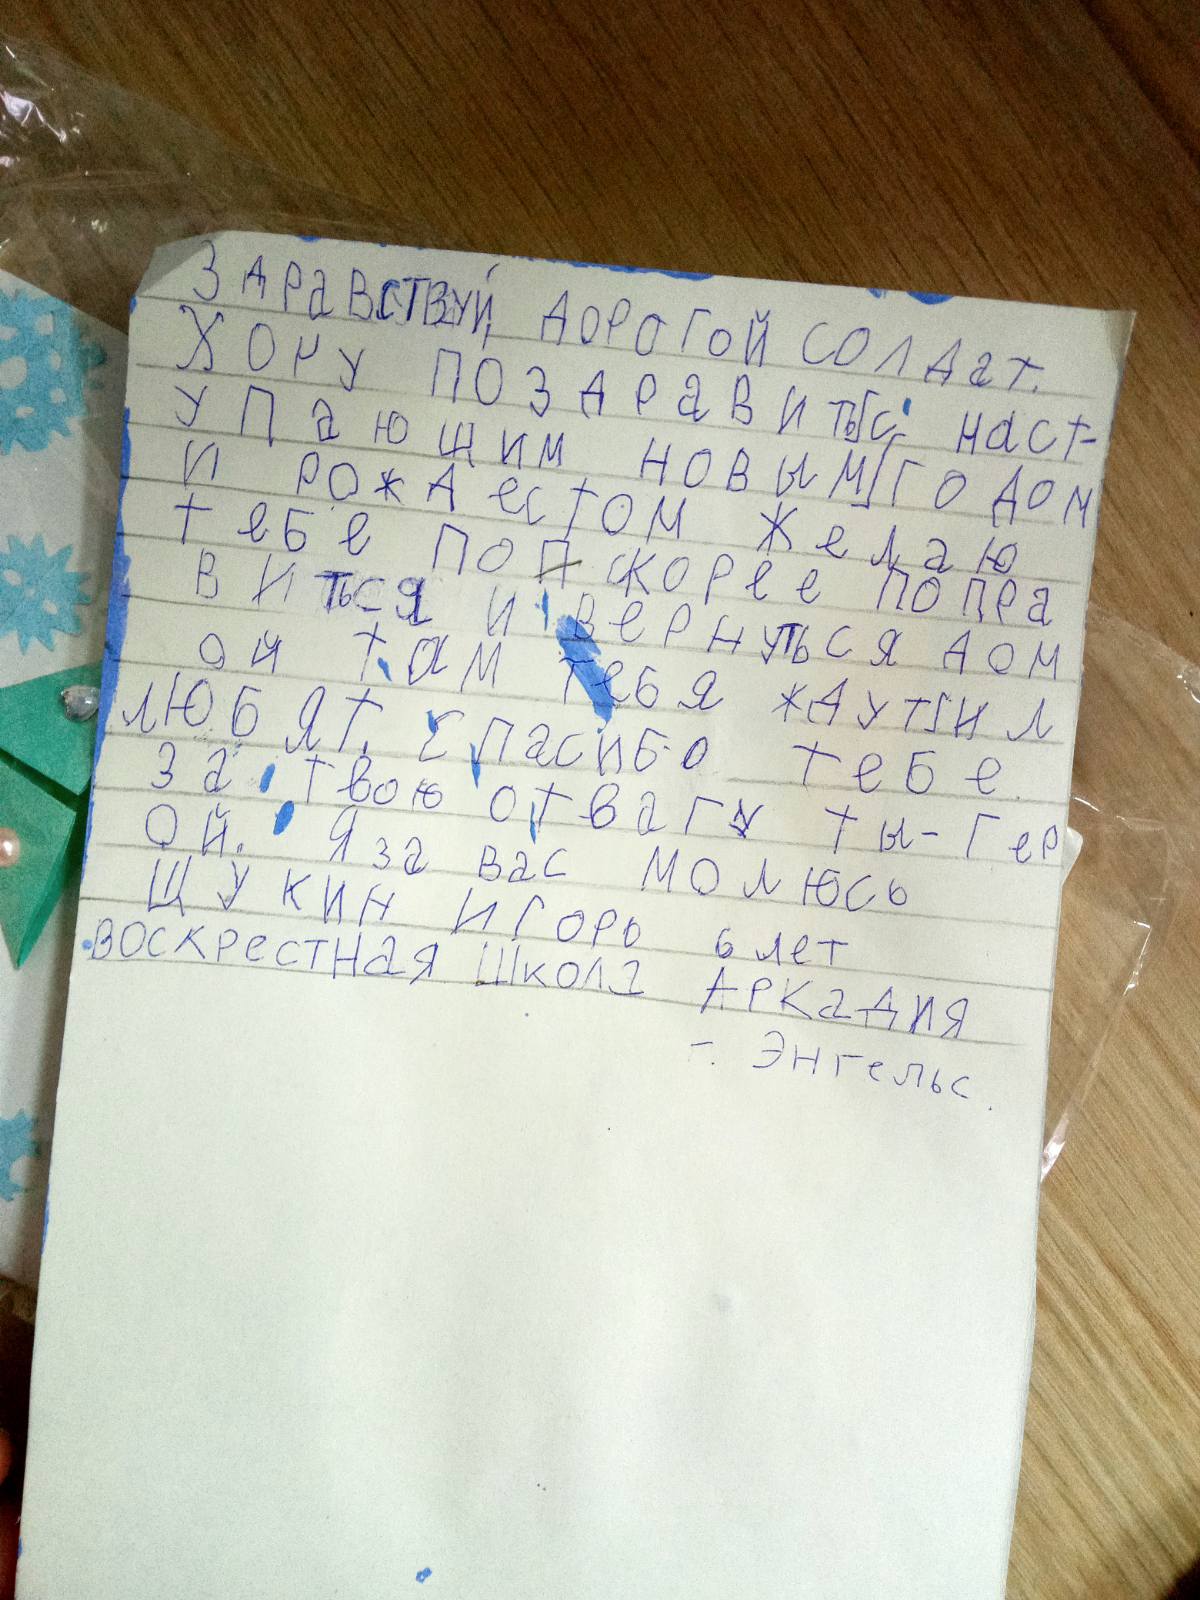 Здравствуй, дорогой солдат.
Хочу поздравить с наст-
упающим новым годом
и рождестом желаю
тебе поп скорее попра
виться и вернуться дом
ой там тебя ждут и л
любят. Спасибо тебе
за твою отвагу ты - гер
ой. Я за вас молюсь
Щукин Игорь 6 лет
воскрестная школа Аркадия
г. Энгельс.